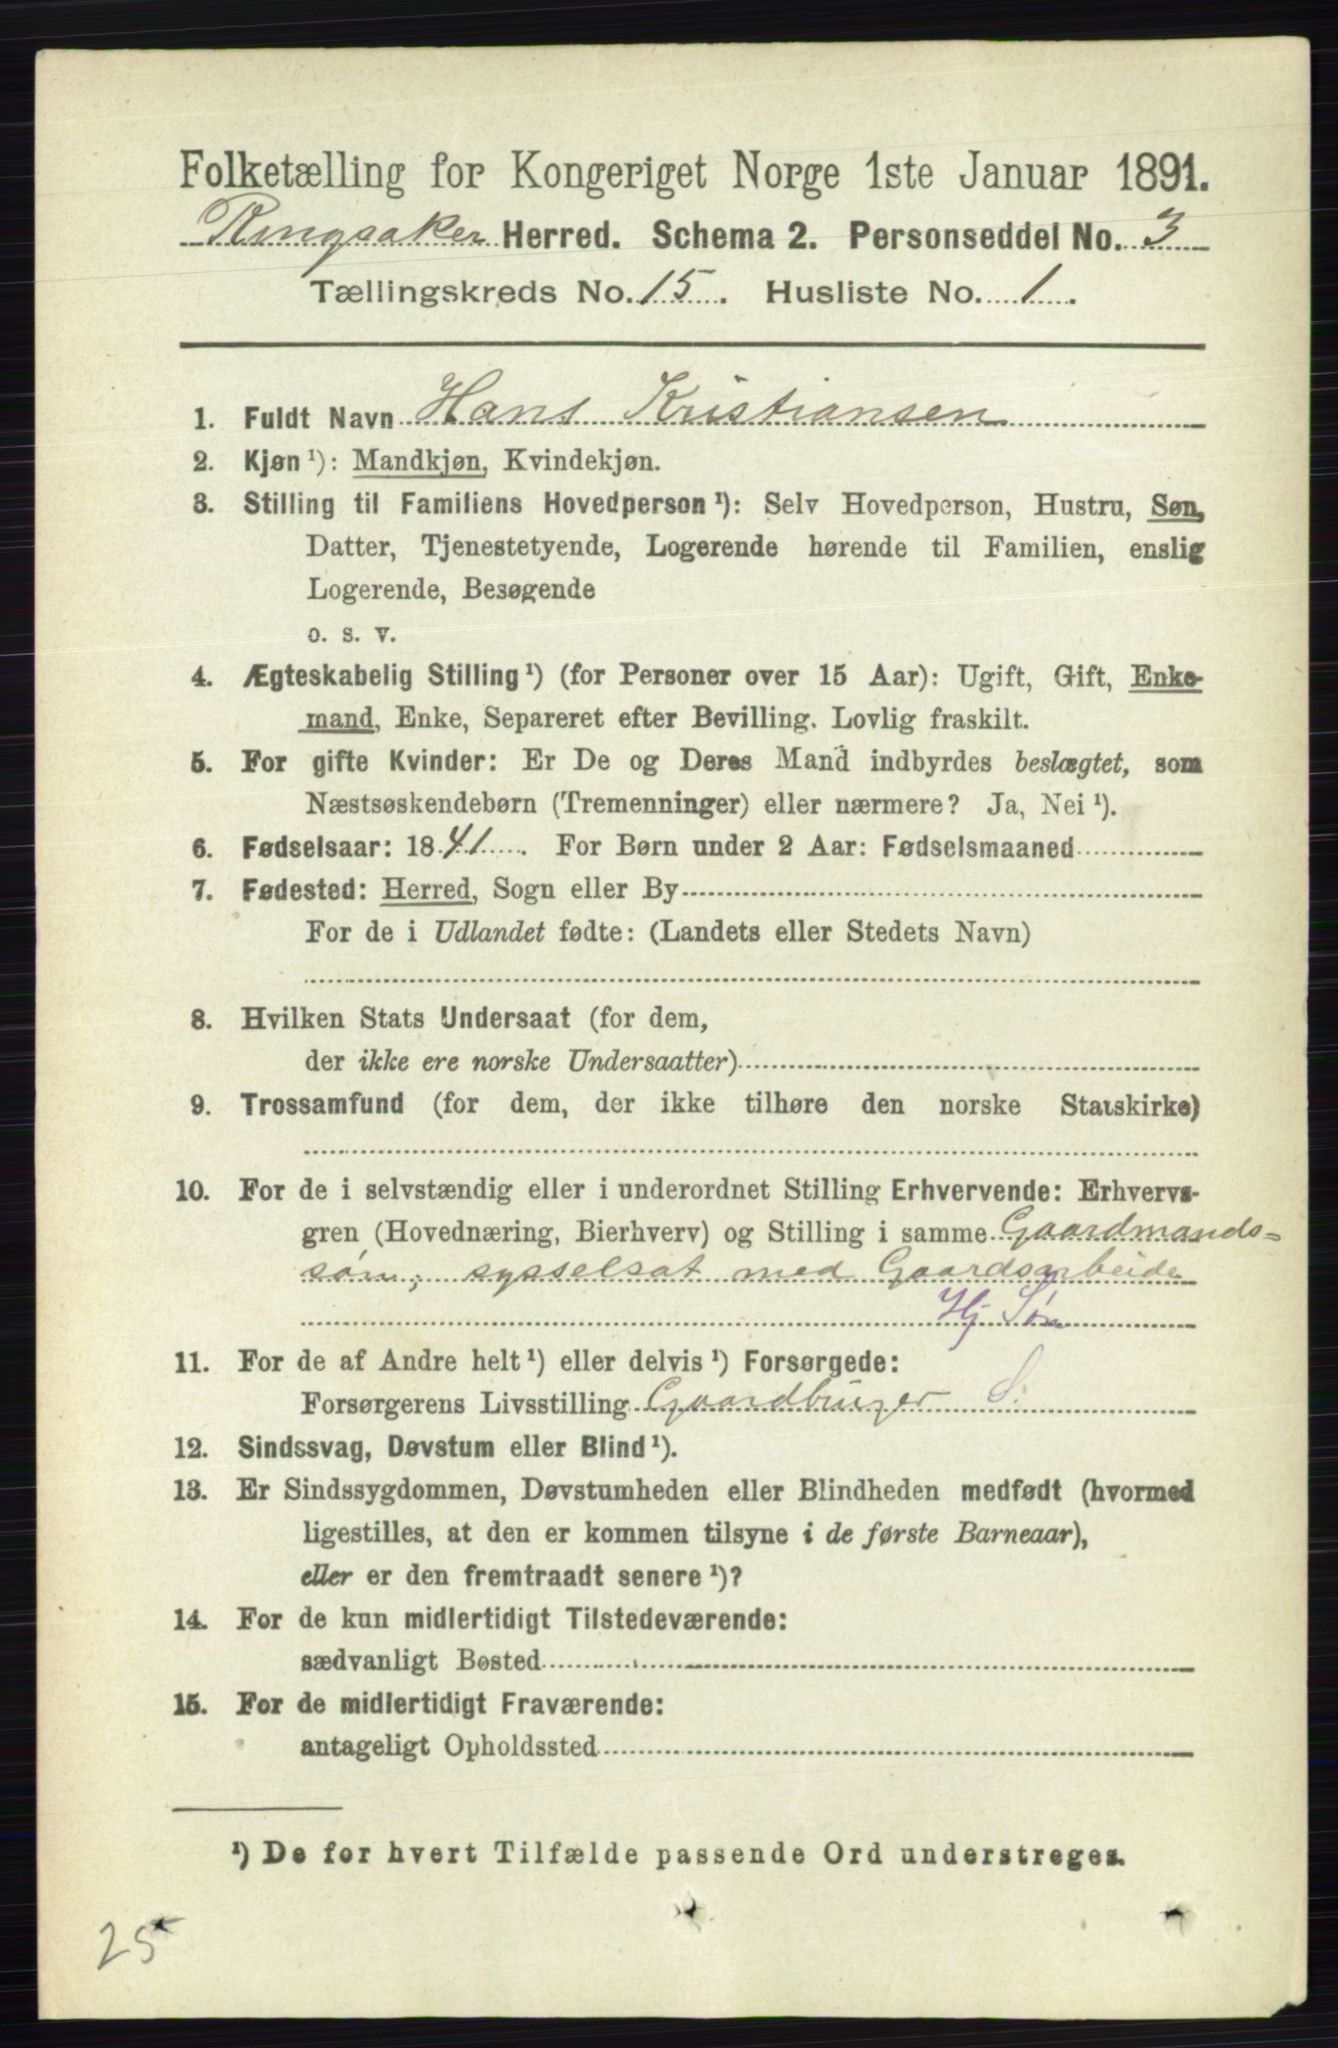 Folketælling for Kongeriget Norge 1ste Januar 1891.
Ringsaker Herred. Schema 2. Personseddel No. 3
Tællingskreds No. 15. Husliste No. 1.
1. Fuldt Navn Hans Kristiansen
2. Kjøn ¹): Mandkjøn, Kvindekjøn.
3. Stilling til Familiens Hovedperson ¹): Selv Hovedperson, Hustru, Søn,
Datter, Tjenestetyende, Logerende hørende til Familien, enslig
Logerende, Besøgende
o. s. v.
4. Ægteskabelig Stilling ¹) (for Personer over 15 Aar): Ugift, Gift, Enke-
mand, Enke, Separeret efter Bevilling. Lovlig fraskilt.
5. For gifte Kvinder: Er De og Deres Mand indbyrdes beslægtet, som
Næstsøskendebørn (Tremenninger) eller nærmere? Ja, Nei ¹).
6. Fødselsaar: 1841. For Børn under 2 Aar: Fødselsmaaned
7. Fødested: Herred, Sogn eller By
For de i Udlandet fødte: (Landets eller Stedets Navn)
8. Hvilken Stats Undersaat (for dem,
der ikke ere norske Undersaatter)
9. Trossamfund (for dem, der ikke tilhøre den norske Statskirke)
10. For de i selvstændig eller i underordnet Stilling Erhvervende: Erhvervs-
gren (Hovednæring, Bierhverv) og Stilling i samme Gaardmands-
søn, sysselsat med Gaardsarbeide
Hj Søn
11. For de af Andre helt ¹) eller delvis ¹) Forsørgede:
Forsørgerens Livsstilling Gaardbruger S.
12. Sindssvag, Døvstum eller Blind ¹).
13. Er Sindssygdommen, Døvstumheden eller Blindheden medfødt (hvormed
ligestilles, at den er kommen tilsyne i de første Barneaar),
eller er den fremtraadt senere ¹)?
14. For de kun midlertidigt Tilstedeværende:
sædvanligt Bosted
15. For de midlertidigt Fraværende:
antageligt Opholdssted
¹) De for hvert Tilfælde passende Ord understreges.
25